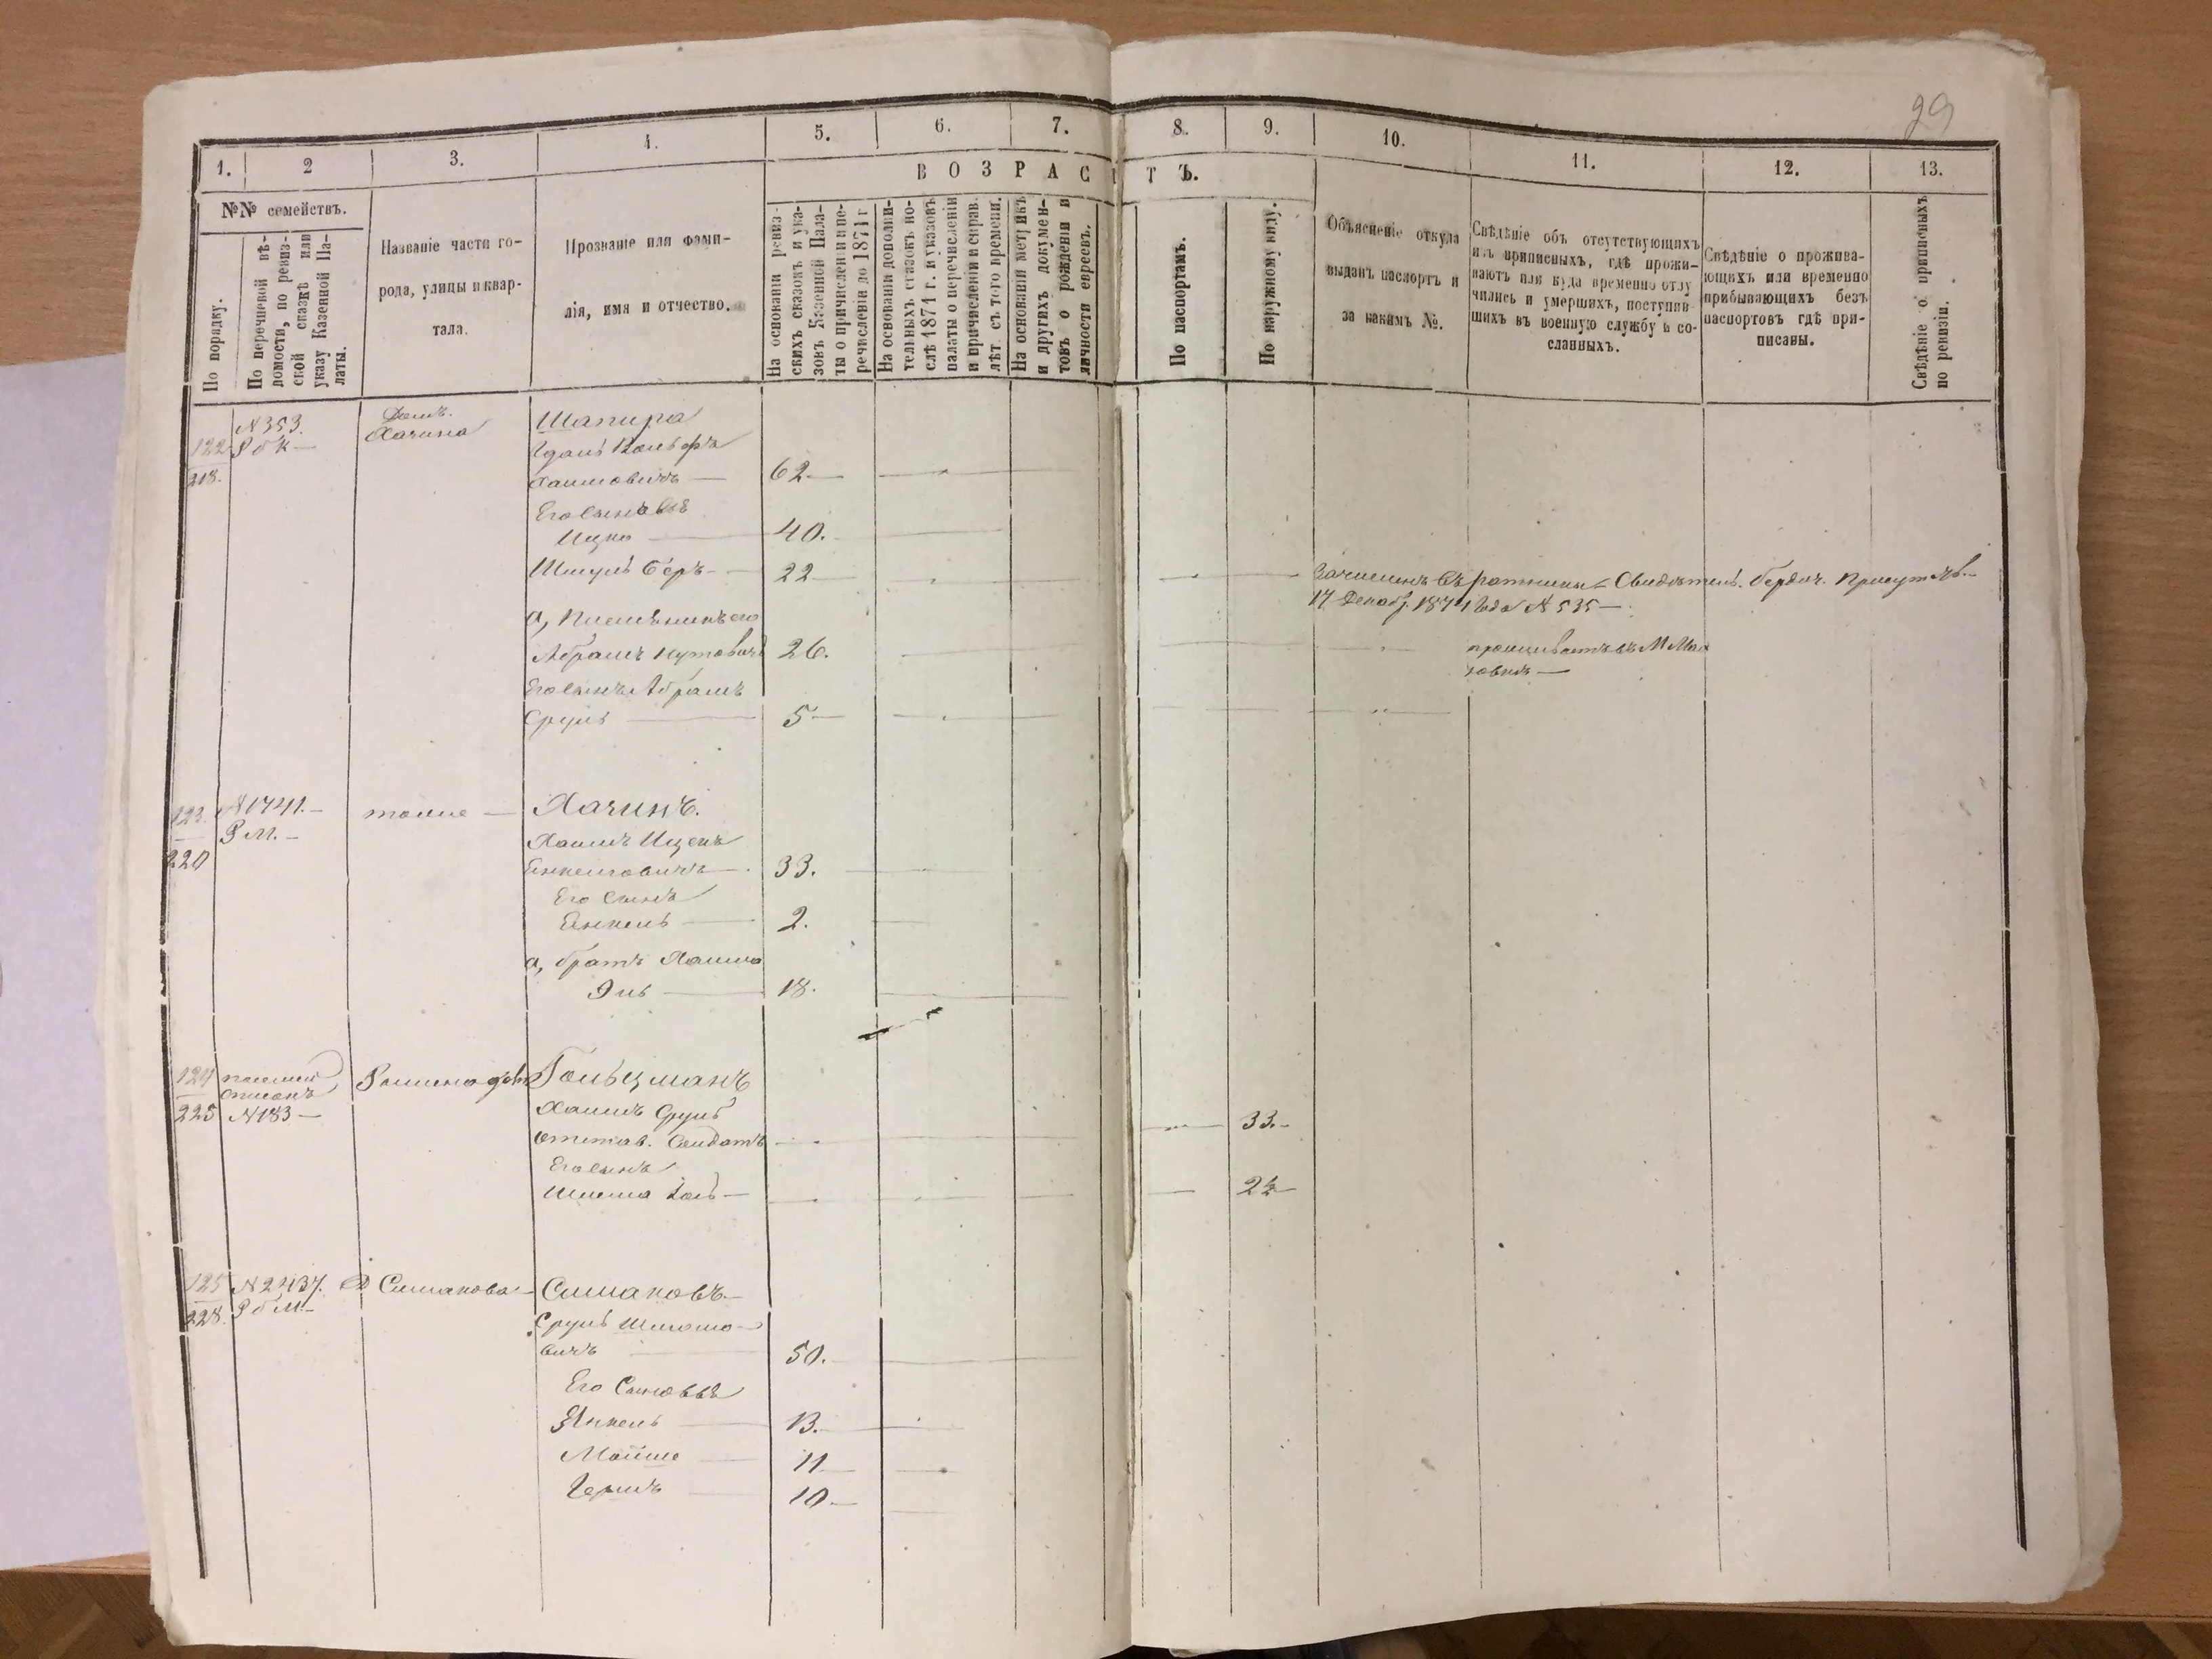 29
1.
2
3.
4.
5.
6.
7.
8.
9.
10.
11.
12.
13.
ВОЗРАСТЪ.
№№ семействъ.
По порядку.
По перечневой вѣ-
домости, по ревиз-
ской сказкѣ или
указу Казенной Па-
латы.
Названіе части го-
рода, улицы и квар-
тала.
Прозваніе или фами-
лія, имя и отчество.
На основаніи ревиз-
скихъ сказокъ и ука-
зовъ Казенной Пала-
ты о причисленіи и пе-
речисленіи до 1871 г
На основаніи дополни-
тельныхъ сказокъ по-
слѣ 1871 г. и указовъ
палаты о перечисленіи
и причисленіи и справ.
лѣт. съ того времени.
На основаніи метрикъ
и другихъ докумен-
товъ о рожденіи и
личности евреевъ.
По паспортамъ.
По наружному виду.
Объясненіе откуда
выданъ паспортъ и
за какимъ №.
Свѣдѣніе объ отсутствующихъ
изъ приписныхъ, гдѣ прожи-
ваютъ или куда временно отлу
чились и умершихъ, поступив-
шихъ въ военную службу и со-
сланныхъ.
Свѣдѣніе о прожива-
ющихъ или временно
прибывающихъ безъ
паспортовъ гдѣ при-
писаны.
Свѣдѣніе о приписныхъ
по ревизіи.
122
218.
N 353.
Р б К
Домъ.
Хачина
Шапира
Вольфъ
Хаимовичъ 62
Его сыновья
Ицко 40.
Шмуль Беръ 22
Зачисленъ въ ратники Свидѣтел. Бердич. Присутств.
17 Декабр. 1874 года N 535
а, племянникъ его
Абрамъ 26.
проживаетъ въ М
Его сынъ Абрамъ
Сруль 5
123.
220
N 1741.
Р М.
тоже
Хачинъ.
Хаимъ Ицекъ
Янкелговичъ 33.
Его сынъ
Янкель 2.
а, братъ Хаима
Эль 18.
124
225
списокъ
N 183
Гольцманъ
Хаимъ Сруль
отстав. Солдатъ 33.
Его сынъ
125
228.
Р б М
Д Симакова
Симаковъ
Сруль Шлемо-
вичъ 50.
Его Сыновья
Янкель 13.
Мойше 11
Гершъ 10